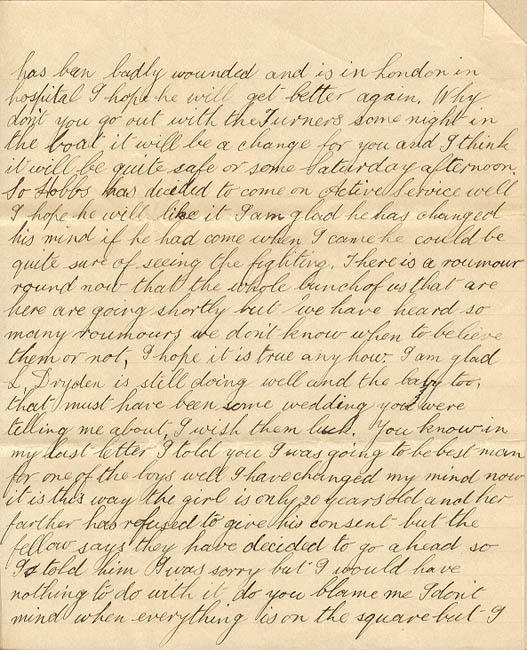 has been badly wounded and is in London in
hospital I hope he will get better again. Why
dont you go out with the Turners some night in
the boat it will be a change for you and I think
it will be quite safe or some Saturday afternoon.
So Hobbs has decided to come on Active Service well
I hope he will like it I am glad he has changed
his mind if he had come when I came he could be
quite sure of seeing the fighting. There is a roumour
round now that the whole bunch of us that are
here are going shortly but we have heard so
many roumours we dont know when to believe
them or not, I hope it is true any how. I am glad
L. Dryden is still doing well and the baby too,
that must have been some wedding you were
telling me about, I wish them luck. You know in
my last letter I told you I was going to be best man
for one of the boys well I have changed my mind now
it is this way the girl is only 20 years old and her
farther has refused to give his consent but the
fellow says they have decided to go ahead so
I told him I was sorry but I would have
nothing to do with it do you blame me I dont
mind when everything is on the square but I